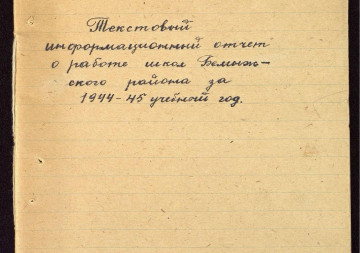 Текстовый
информационный отчет
о работе школ Бемыж-
ского района за
1944-45 учебный год.